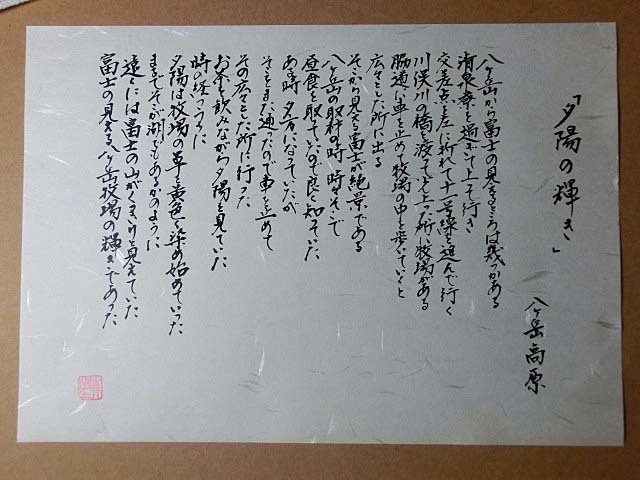 「夕陽の輝き」
八ヶ岳高原
八ヶ岳から富士の見えるところは幾つかある
清泉寮を過ぎて上って行き
交差点を左に折れて十一号線を進んで行く
川俣川の橋を渡って少し上った所に牧場がある
脇道に車を止めて牧場の中を歩いていくと
広々とした所に出る
そこから見える富士が絶景である
八ヶ岳の取材の時 時々そこで
昼食を取っていたので良く知っていた
ある時 夕方になっていたが
そこをまた通ったので車を止めて
その広々とした所に行った
お茶を飲みながら夕陽を見ていた
時の経つうちに
夕陽は牧場の草を黄色く染め始めていった
まるでそこが湖でもあるかのように
遠くには富士の山がくっきりと見えていた
富士の見える八ヶ岳牧場の輝きであった